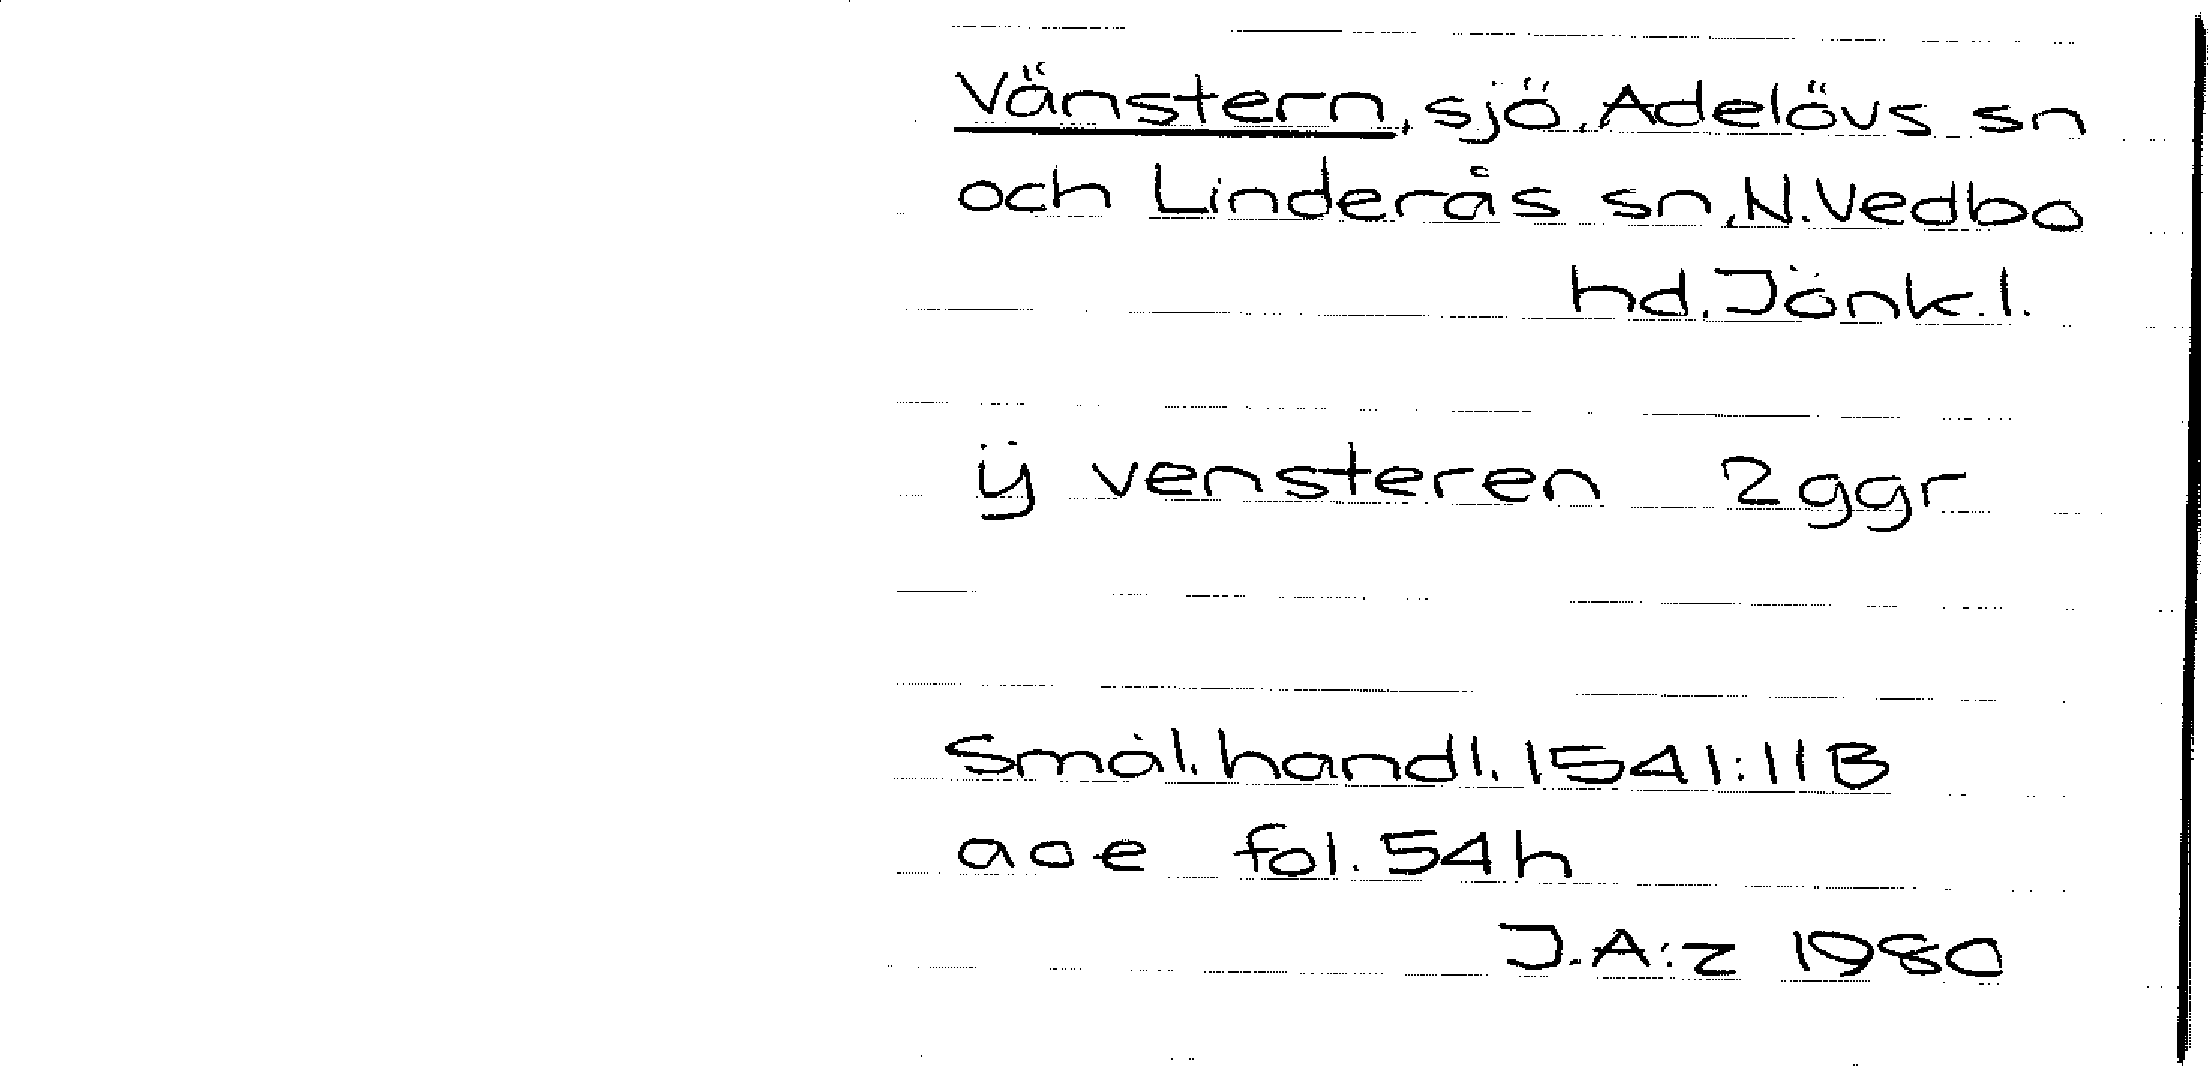 Vänstern, sjö, Adelövs sn
och Linderås sn, N. Vedbo
hd. Jönk. l.
ÿ vensteren 2ggr
Smål. handl. 1541:11B
aoe fol. 54h
J.A:z 1980